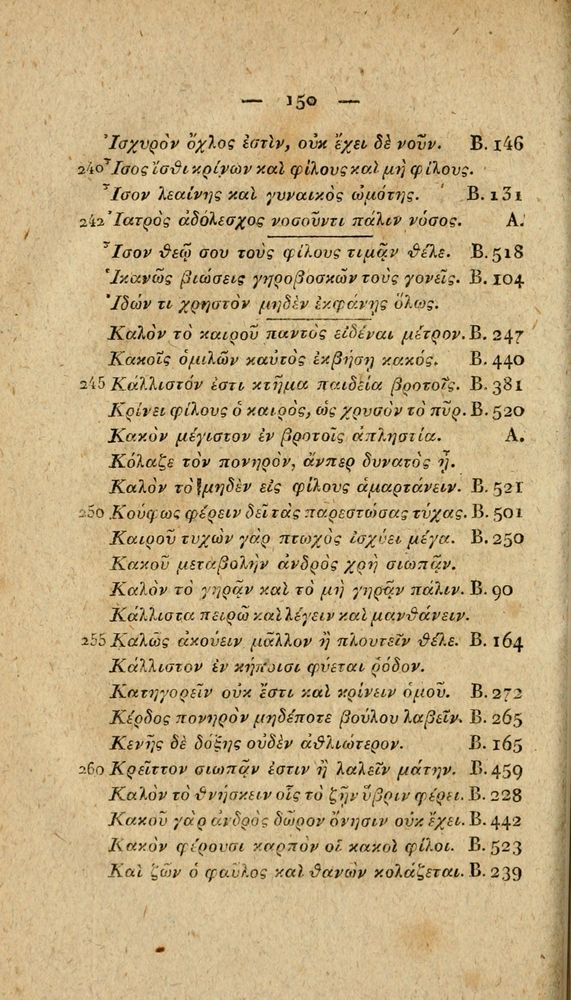 — 150 —
Ἰσχυρὸν ὄχλος ἐστὶν, οὐκ ἔχει δὲ νοῦν. B. 146
240 Ἴσος ἴσθι κρίνων καὶ φίλους καὶ μὴ φίλους.
Ἴσον λεαίνης καὶ γυναικὸς ὠμότης. B. 131
242 Ἰατρὸς ἀδόλεσχος νοσοῦντι πάλιν νόσος. A.
Ἴσον θεῷ σου τοὺς φίλους τιμᾷν θέλε. B. 518
Ἱκανῶς βιώσεις γηροβοσκῶν τοὺς γονεῖς. B. 104
Ἰδών τι χρηστὸν μηδὲν ἐκφάνῃς ὅλως.
Καλὸν τὸ καιροῦ παντὸς εἰδέναι μέτρον. B. 247
Κακοῖς ὁμιλῶν καὐτὸς ἐκβήσῃ κακός. B. 440
245 Κάλλιστόν ἐστι κτῆμα παιδεία βροτοῖς. B. 381
Κρίνει φίλους ὁ καιρὸς, ὡς χρυσὸν τὸ πῦρ. B. 520
Κακὸν μέγιστον ἐν βροτοῖς ἀπληστία. A.
Κόλαζε τὸν πονηρὸν, ἄνπερ δυνατὸς ᾖ.
Καλὸν τὸ μηδὲν εἰς φίλους ἁμαρτάνειν. B. 521
250 Κούφως φέρειν δεῖ τὰς παρεστώσας τύχας. B. 501
Καιροῦ τυχὼν γὰρ πτωχὸς ἰσχύει μέγα. B. 250
Κακοῦ μεταβολὴν ἀνδρὸς χρὴ σιωπᾷν.
Καλὸν τὸ γηρᾷν καὶ τὸ μὴ γηρᾷν πάλιν. B. 90
Κάλλιστα πειρῶ καὶ λέγειν καὶ μανθάνειν.
255 Καλῶς ἀκούειν μᾶλλον ἢ πλουτεῖν θέλε. B. 164
Κάλλιστον ἐν κήποισι φύεται ῥόδον.
Κατηγορεῖν οὐκ ἔστι καὶ κρίνειν ὁμοῦ. B. 272
Κέρδος πονηρὸν μηδέποτε βούλου λαβεῖν. B. 265
Κενῆς δὲ δόξης οὐδὲν ἀθλιώτερον. B. 165
260 Κρεῖττον σιωπᾷν ἐστιν ἢ λαλεῖν μάτην. B. 459
Καλὸν τὸ θνήσκειν οἷς τὸ ζῇν ὕβριν φέρει. B. 228
Κακοῦ γὰρ ἀνδρὸς δῶρον ὄνησιν οὐκ ἔχει. B. 442
Κακὸν φέρουσι καρπὸν οἱ κακοὶ φίλοι. B. 523
Καὶ ζῶν ὁ φαῦλος καὶ θανὼν κολάζεται. B. 239